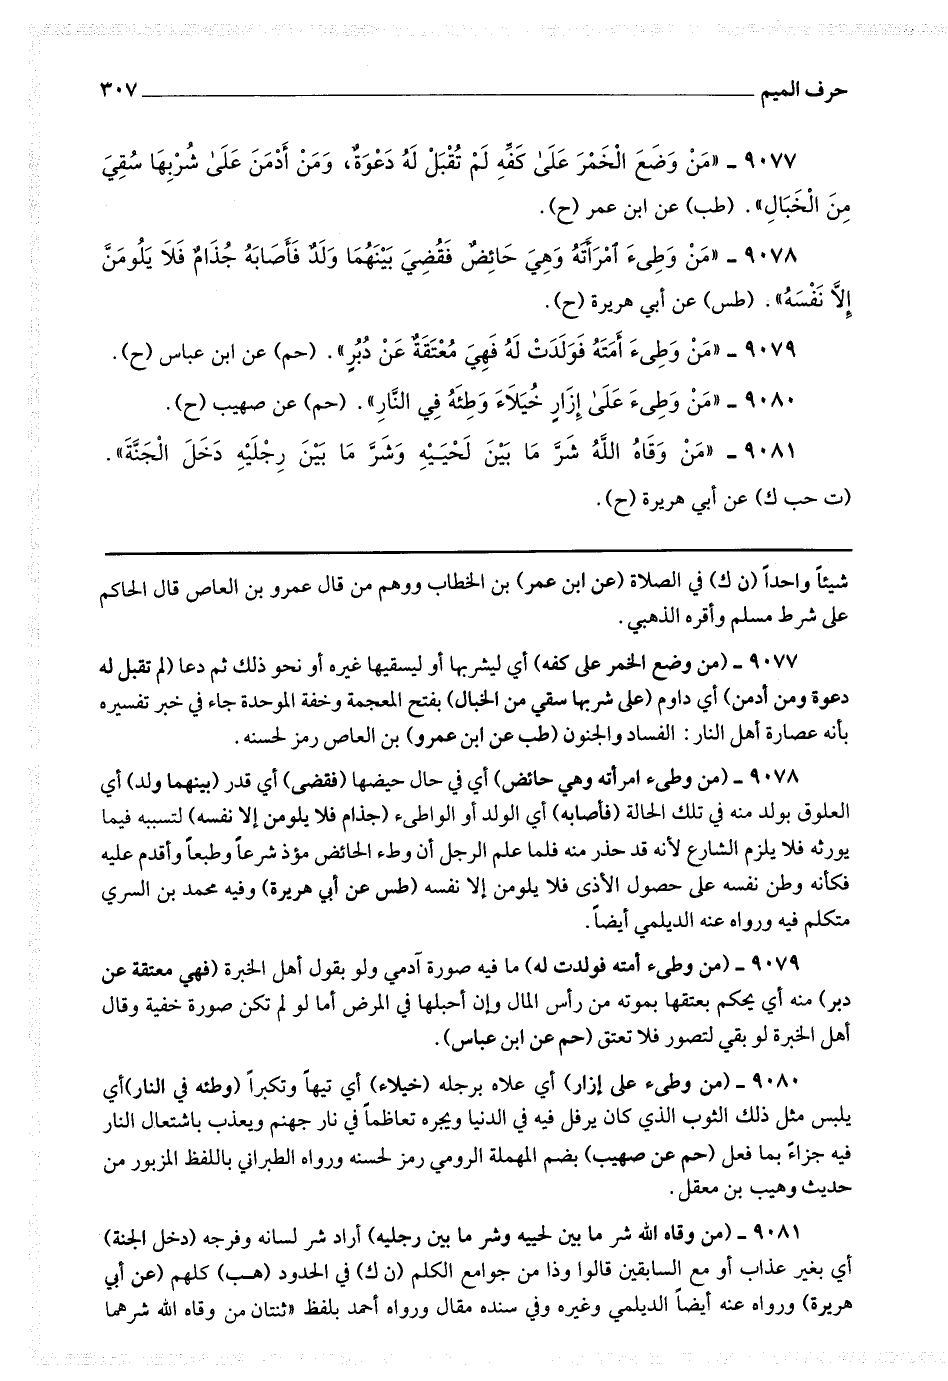 حرف الميم ٣٠٧
٩٠٧٧ ـ «مَنْ وَضَعَ الْخَمْرَ عَلَىٰ كَفِّهِ لَمْ تُقْبَلْ لَهُ دَعْوَةٌ، وَمَنْ أَدْمَنَ عَلَىٰ شُرْبِهَا سُقِيَ
مِنَ الْخَبَالِ». (طب) عن ابن عمر (ح).
٩٠٧٨ ـ «مَنْ وَطِىءَ ٱمْرَأَتَهُ وَهِيَ حَائِضٌ فَقُضِيَ بَيْنَهُمَا وَلَدٌ فَأَصَابَهُ جُذَامٌ فَلَا يَلُومَنَّ
إِلاَّ نَفْسَهُ». (طس) عن أبي هريرة (ح).
٩٠٧٩ ـ «مَنْ وَطِىءَ أَمَتَهُ فَوَلَدَتْ لَهُ فَهِيَ مُعْتَقَةٌ عَنْ دُبُرٍ». (حم) عن ابن عباس (ح).
٩٠٨٠ ـ «مَنْ وَطِىءَ عَلَىٰ إِزَارٍ خُيَلَاءَ وَطِئَهُ فِي النَّارِ». (حم) عن صهيب (ح).
٩٠٨١ ـ «مَنْ وَقَاهُ اللَّهُ شَرَّ مَا بَيْنَ لَحْيَيْهِ وَشَرَّ مَا بَيْنَ رِجْلَيْهِ دَخَلَ الْجَنَّةَ».
(ت حب ك) عن أبي هريرة (ح).
شيئاً واحداً (ن ك) في الصلاة (عن ابن عمر) بن الخطاب ووهم من قال عمرو بن العاص قال الحاكم
على شرط مسلم وأقره الذهبي.
٩٠٧٧ ـ (من وضع الخمر على كفه) أي ليشربها أو ليسقيها غيره أو نحو ذلك ثم دعا (لم تقبل له
دعوة ومن أدمن) أي داوم (على شربها سقي من الخبال) بفتح المعجمة وخفة الموحدة جاء في خبر تفسيره
بأنه عصارة أهل النار: الفساد والجنون (طب عن ابن عمرو) بن العاص رمز لحسنه.
٩٠٧٨ ـ (من وطىء امرأته وهي حائض) أي في حال حيضها (فقضى) أي قدر (بينهما ولد) أي
العلوق بولد منه في تلك الحالة (فأصابه) أي الولد أو الواطىء (جذام فلا يلومن إلا نفسه) لتسببه فيما
يورثه فلا يلزم الشارع لأنه قد حذر منه فلما علم الرجل أن وطء الحائض مؤذ شرعاً وطبعاً وأقدم عليه
فكأنه وطن نفسه على حصول الأذى فلا يلومن إلا نفسه (طس عن أبي هريرة) وفيه محمد بن السري
متكلم فيه ورواه عنه الديلمي أيضاً.
٩٠٧٩ ـ (من وطىء أمته فولدت له) ما فيه صورة آدمي ولو بقول أهل الخبرة (فهي معتقة عن
دبر) منه أي يحكم بعتقها بموته من رأس المال وإن أحبلها في المرض أما لو لم تكن صورة خفية وقال
أهل الخبرة لو بقي لتصور فلا تعتق (حم عن ابن عباس).
٩٠٨٠ ـ (من وطىء على إزار) أي علاه برجله (خيلاء) أي تيهاً وتكبراً (وطئه في النار)أي
يلبس مثل ذلك الثوب الذي كان يرفل فيه في الدنيا ويجره تعاظماً في نار جهنم ويعذب باشتعال النار
فيه جزاءً بما فعل (حم عن صهيب) بضم المهملة الرومي رمز لحسنه ورواه الطبراني باللفظ المزبور من
حديث وهيب بن معقل.
٩٠٨١ ـ (من وقاه الله شر ما بين لحييه وشر ما بين رجليه) أراد شر لسانه وفرجه (دخل الجنة)
أي بغير عذاب أو مع السابقين قالوا وذا من جوامع الكلم (ن ك) في الحدود (هب) كلهم (عن أبي
هريرة) ورواه عنه أيضاً الديلمي وغيره وفي سنده مقال ورواه أحمد بلفظ «ثنتان من وقاه الله شرهما